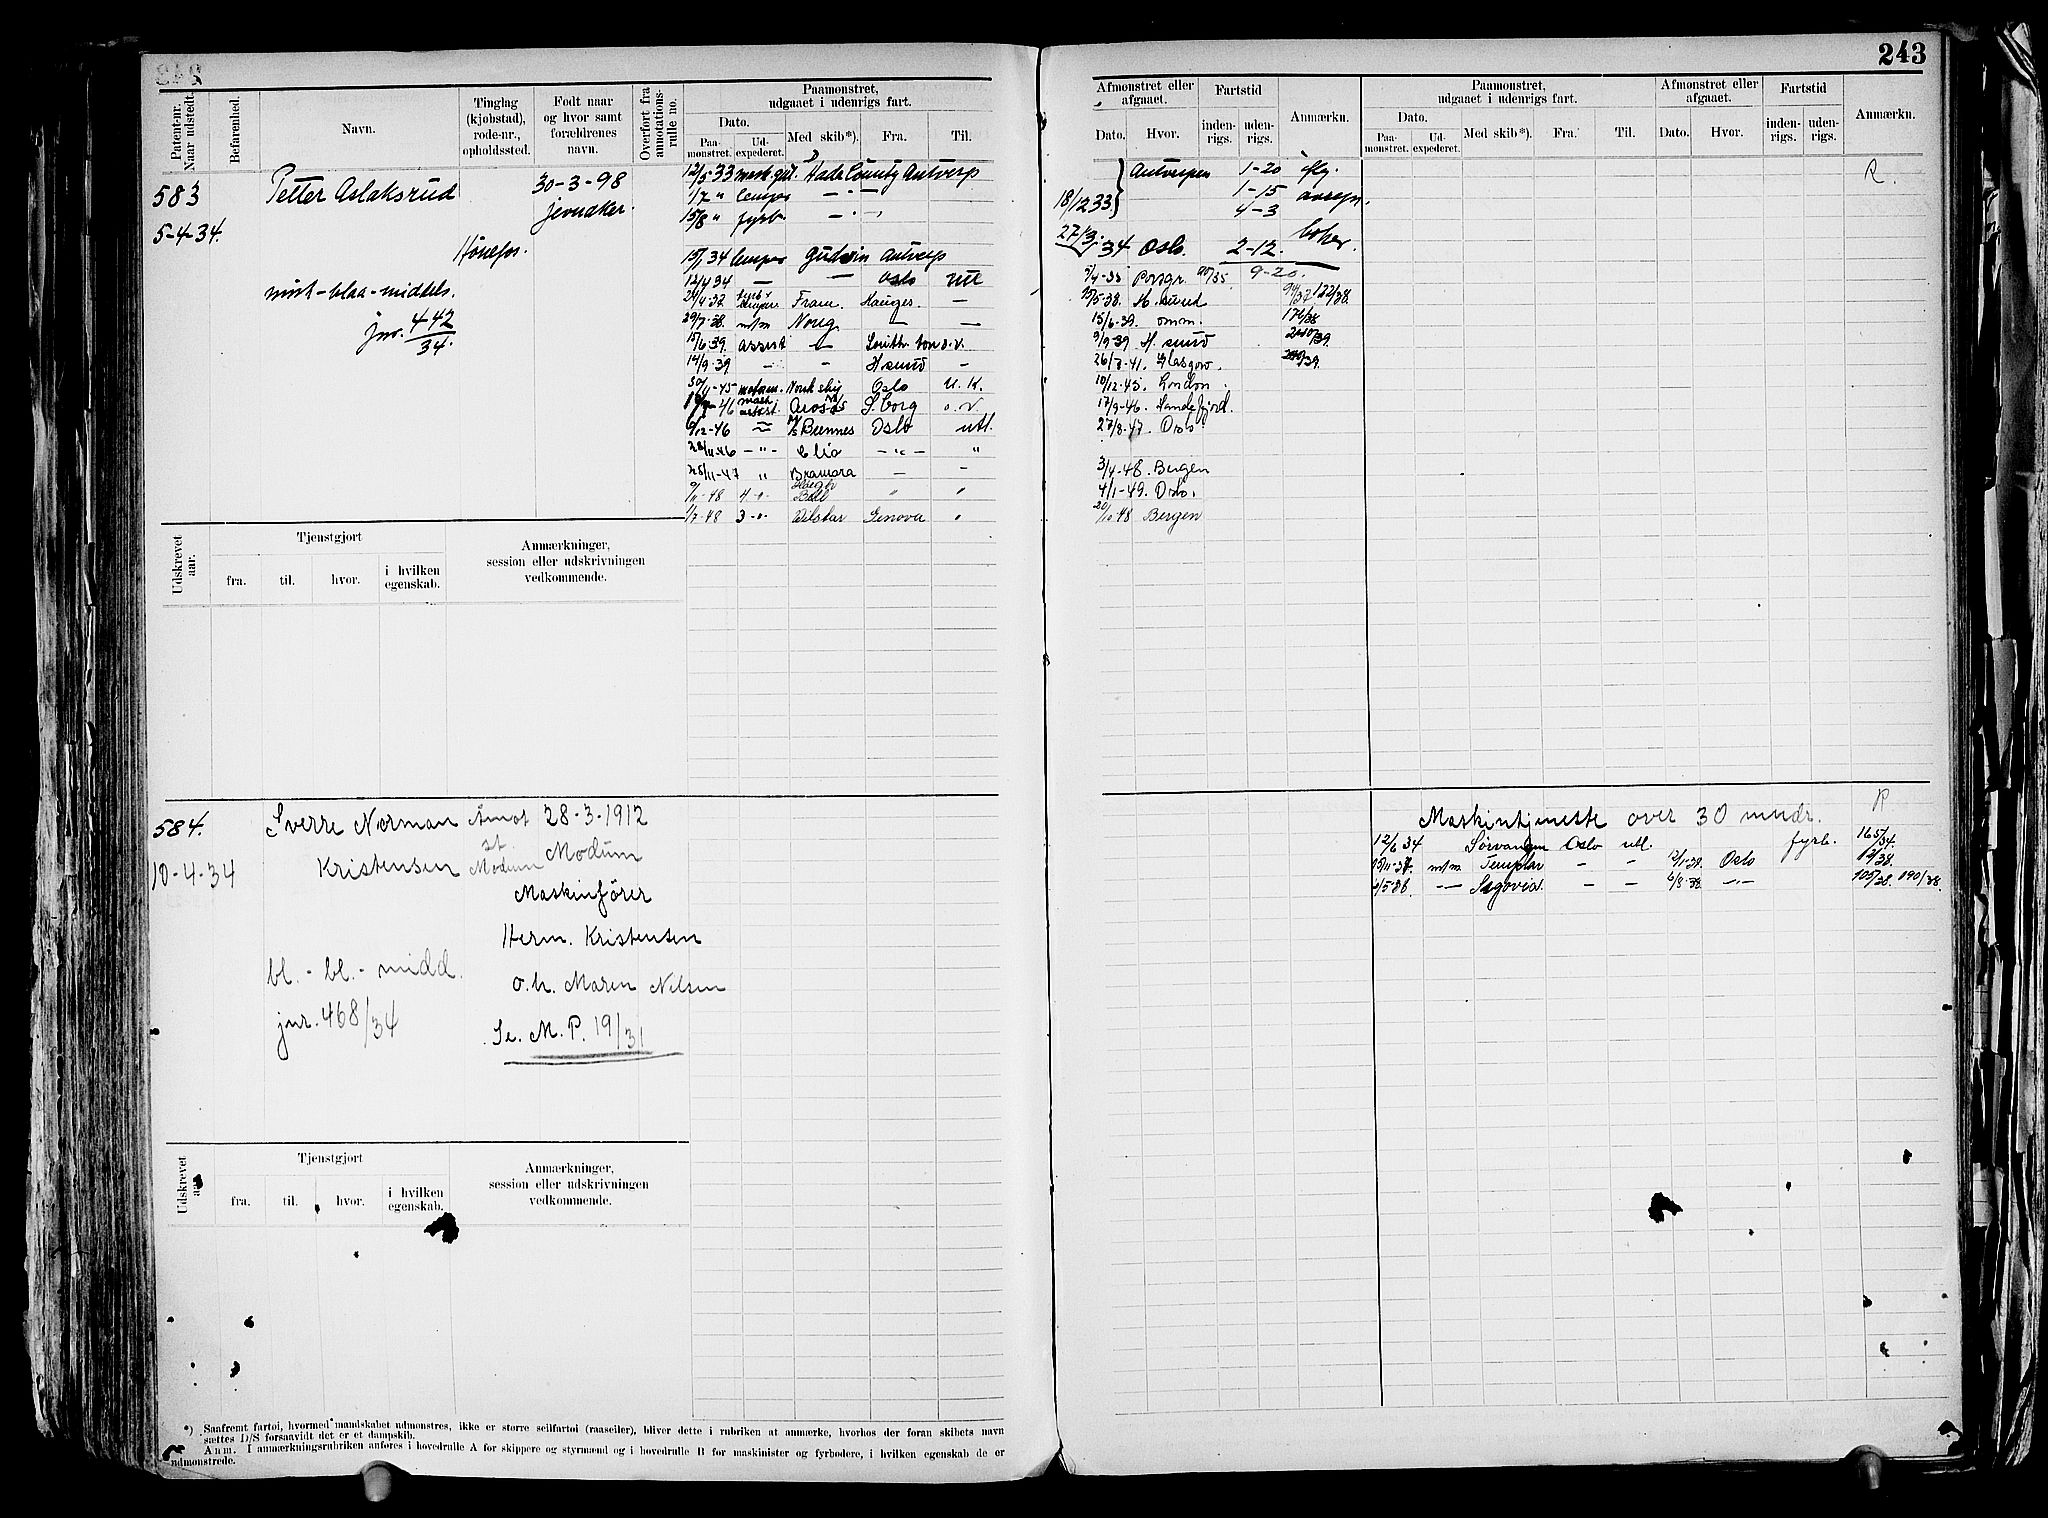 243
Patent-nr. Naar udstedt.
Befarenhed.
Navn.
Tinglag (kjøbstad), rode-nr., opholdssted.
Født naar og hvor samt forældrenes navn.
Overført fra annotations-rulle no.
Paamønstret, udgaaet i udenrigs fart.
Dato.
Paa-mønstret.
Ud-expederet.
Med skib*).
Fra.
Til.
Afmønstret eller afgaaet.
Dato.
Hvor.
Fartstid
inden-rigs.
uden-rigs.
Anmærkn.
Paamønstret, udgaaet i udenrigs fart.
Dato.
Paa-mønstret.
Ud-expederet.
Med skib*).
Fra.
Til.
Afmønstret eller afgaaet.
Dato.
Hvor.
Fartstid
inden-rigs.
uden-rigs.
Anmærkn.
583
5-4-34.
Petter Aslaksrud
Hönefos.
30-3-98
Jevnaker.
mørk-blaa-middels.
jnr. 442/34.
12/5 33
County Antverp
1/7 " lempes
15/8 " fyrb
15/1 34 lempes Gudvin Antverp
12/4 34 — Oslo Utl
24/4 37 Fram. Hauges. —
29/7-38. m/m Noreg. — —
15/6 39. assist — South. ton o.v.
14/9-39 - - H.sund -
30/11-45 Norsk skip Oslo U.K.
46 S.borg o.v.
9/12-46 Oslo utl.
28/11-46 -"- Clio -"- "
25/11-47 " Bramora — –
9/11-48 Bell " "
1/7-48 Vilstar Genova "
Antverpen 1-20
18/12 33 1-15
4-3
27/3-34 Oslo. 2-12.
9-20.
5/4-35 Porsgr 90/35
15/5-38. H.sund 122/38.
15/6-39. omm.
9/9-39 H.sund
26/8-41. Glasgow.
10/12-45. London.
17/9-46. Sandefjord.
27/8-47. Oslo
3/4-48. Bergen
4/1-49. Oslo.
20/10-48 Bergen
R.
Udskrevet aar.
Tjenstgjort
fra.
til.
hvor.
i hvilken egenskab.
Anmærkninger, session eller udskrivningen vedkommende.
584.
10-4-34
Sverre Norman
Kristensen
Åmot
st.
Modum
28-3-1912
Modum
Maskinfører
Herm. Kristensen
o.h. Maren Nilsen
Se. M.P. 19/31
bl.-bl.-midd.
jnr. 468/34
Maskintjeneste over 30 mndr.
R
12/6 34 Sörvangen Oslo utl. fyrb. 165/34.
15/11-37. m/m. Templar – – 12/1-38. Oslo 12/38.
6/5-38 -- Segovia – – 6/8-38. -"- 105/38. 190/38.
Udskrevet aar.
Tjenstgjort
fra.
til.
hvor.
i hvilken egenskab.
Anmærkninger, session eller udskrivningen vedkommende.
*) Saafremt fartøi, hvormed mandskabet udmønstres, ikke er større seilfartøi (raaseiler), bliver dette i rubriken at anmærke, hvorhos der foran skibets navn
sættes D/S forsaavidt det er et dampskib.
Anm. I anmærkningsrubriken anføres i hovedrulle A for skippere og styrmænd og i hovedrulle B for maskinister og fyrbødere, i hvilken egenskab de er
udmønstrede.